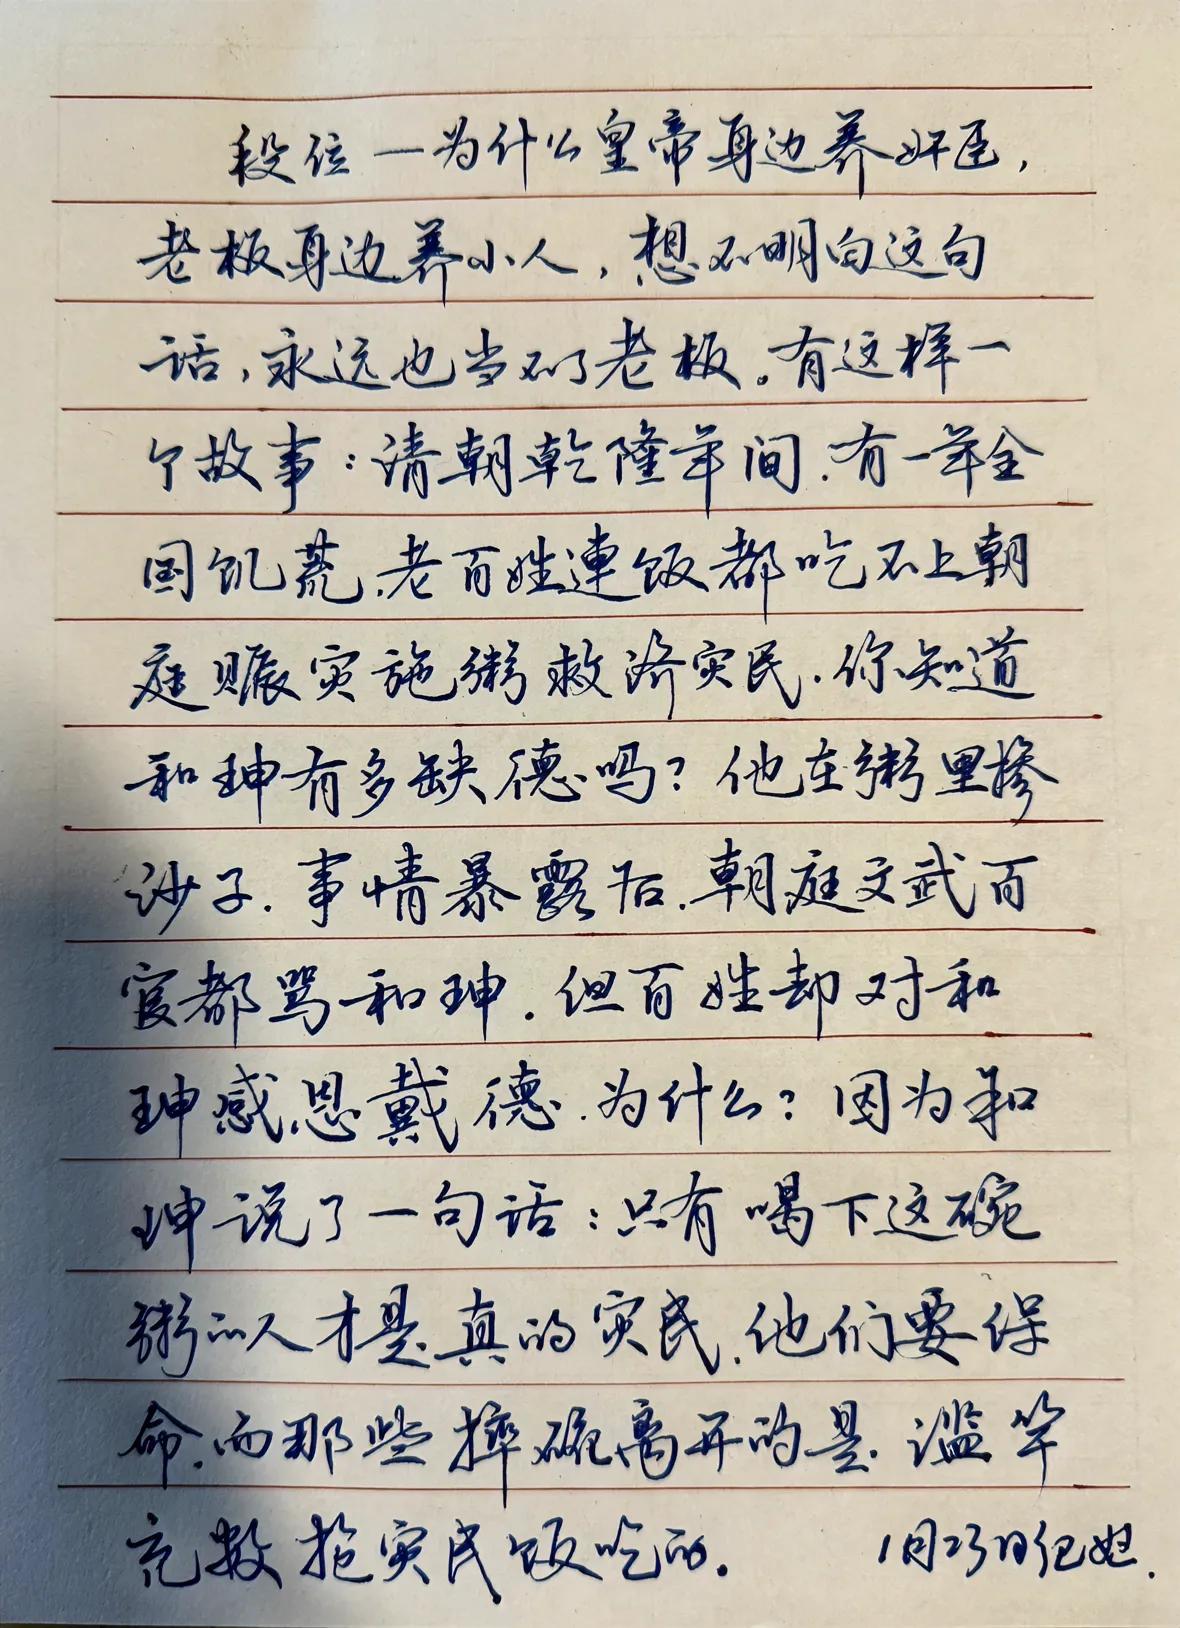 段位一为什么皇帝身边养奸臣，
老板身边养小人，想不明白这句
话，永远也当不了老板。有这样一
个故事：请朝乾隆年间.有一年全
国饥荒.老百姓連饭都吃不上朝
庭赈灾施粥救济灾民.你知道
和珅有多缺德吗？他在粥里掺
沙子.事情暴露后.朝庭文武百
官都骂和珅.但百姓却对和
珅感恩戴德.为什么？因为和
珅说了一句话：只有喝下这碗
粥的人才是真的灾民.他们要保
命.而那些摔碗离开的是.滥竽
充数抢灾民饭吃的。 1月23日